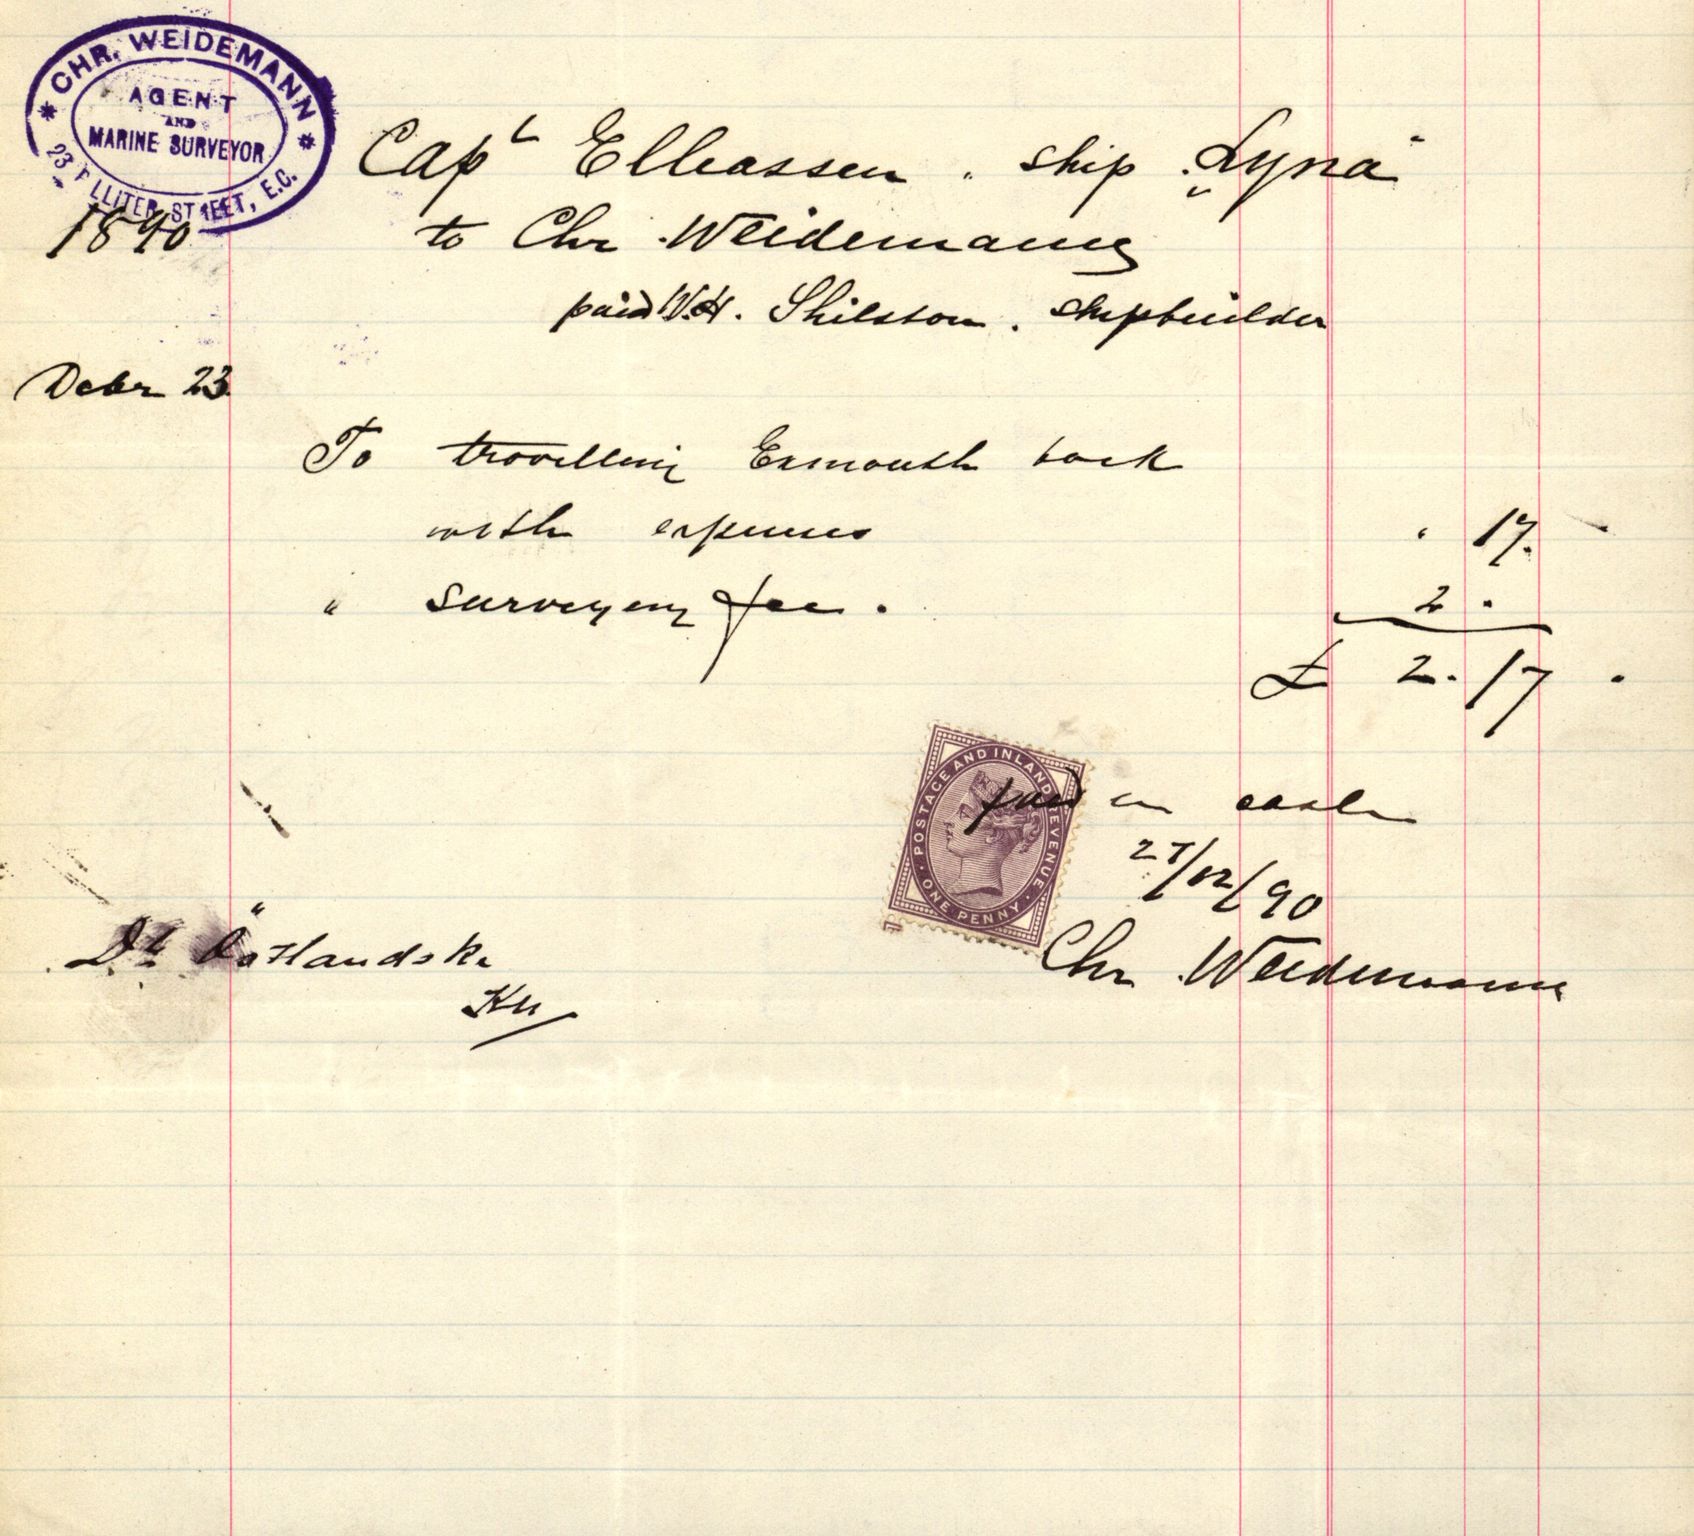 CHR. WEIDEMANN
AGENT
AND
MARINE SURVEYOR
23 LLITER STREET, E.C.
Capt Elleassen . ship "Lyna"
1890 to Chr Weidemann
paid W.H. Shilston . shipbuilder
Debr 23
To travelling Exmouth back
with expenses " 17.
" surveying fee . 2 .
£ 2. 17 .
POSTAGE AND INLAND REVENUE
ONE PENNY
paid in cash
27/12/90
Chr Weidemann